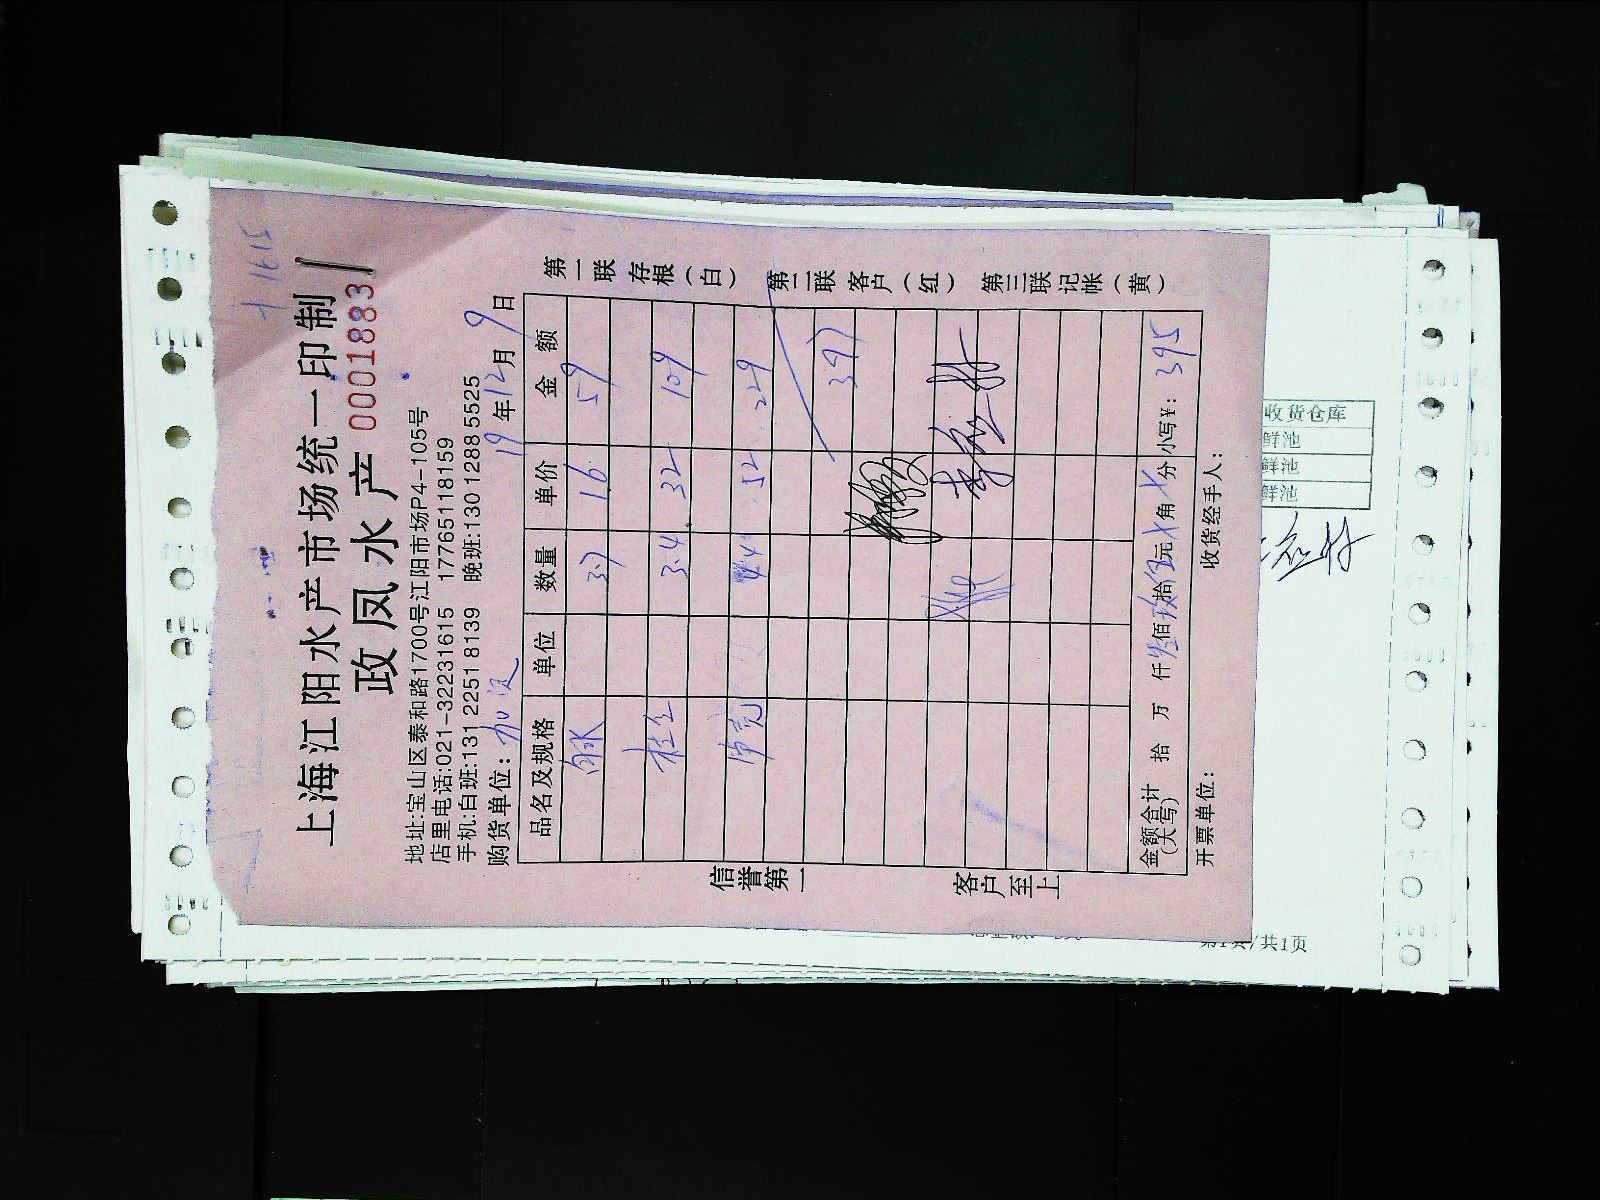 上海江阳水产市场统一印制
政凤水产 0001883
地址:宝山区泰和路1700号江阳市场P4-105号
店里电话:021-32231615 17765118159
手机:白班:131 2251 8139 晚班:130 1288 5525
购货单位: 19年12月9日
品名及规格 单位 数量 单价 金额
3.7 16 59
3.4 32 109
4.4 52 229
397
金额合计(大写) 拾 万 仟叁佰玖拾伍元 角 分 小写¥: 395
开票单位: 收货经手人:
第一联存根(白) 第二联客户(红) 第三联记帐(黄)
信誉第一 客户至上
1615
收货仓库
鲜池
鲜池
鲜池
第1页/共1页